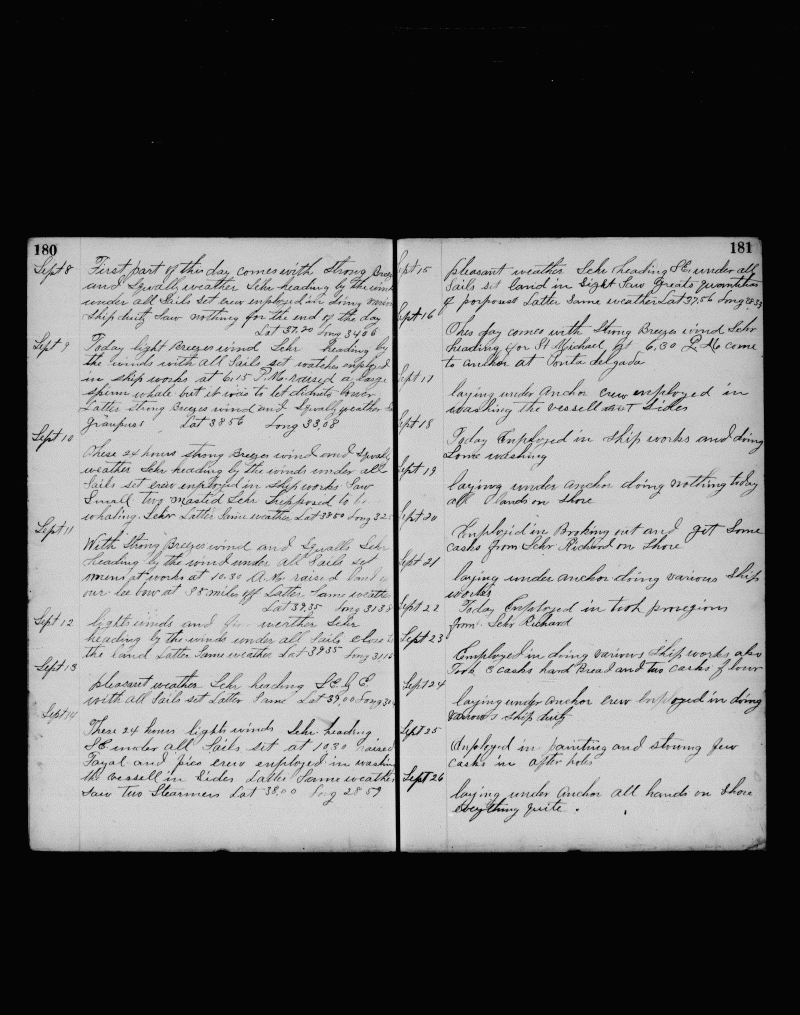 180
Sept 8 First part of this day comes with Strong Breezes
and Squally weather Schr heading by the wind
under all Sails set crew employed in doing various
Ship duty Saw nothing for the end of the day
Lat 37.20 Long 34 06
Sept 9 Today light Breezes wind Schr heading by
the winds with all Sails set watches employed
in ship works at 6.15 P.M. raised a large
sperm whale but it was to let didnto lower
Latter strong Breezes wind and Squally weather
Lat 38 56 Long 33,08
Sept 10
These 24 hours strong Breezes wind and Squally
weather Schr heading by the winds under all
Sails set crew employed in ship works Saw
Small two masted Schr Supposed to be
whaling Schr Latter Same weather Lat 38 50 Long 32
Sept 11
With Strong Breezes wind and Squalls Schr
heading by the wind under all Sails set
mens at works at 10.30 A.M. raised land
our lee bow at 35 miles off Latter Same weather
Lat 39.35 Long 31 38
Sept 12 light winds and weather Schr
heading by the winds under all Sails close to
the land Latter Same weather Lat 39 35 Long 31 12
Sept 13
pleasant weather Schr heading S.E. & E
with all Sails set Latter Same Lat 39,00 Long 30
Sept 14
These 24 hours light winds Schr heading
SE under all Sails set at 10 30 raised
Fayal and pico crew employed in washing
the vessell in Sides Latter Same weather
Saw two Steamers Lat 38.00 Long 28 59
181
Sept 15 pleasant weather Schr heading SE under all
Sails set land in Sight Saw Greats quantities
of porpouss Latter Same weather Lat 37.56 Long
Sept 16
Thes day comes with Strong Breezes wind Schr
heading for St Michael at 6.30 P.M. come
to anchor at Ponta delgada
Sept 17
laying under Anchor crew employed in
washing the vessell out Sides
Sept 18
Today Employed in Ship works and doing
Some washing
Sept 19
laying under anchor doing nothing today
all hands on Shore
Sept 20
Employed in Broking out and get Some
casks from Schr Richard on Shore
Sept 21
laying under anchor doing various Ship
works
Sept 22 Today Employed in took provegions
from Schr Richard
Sept 23
Employed in doing various Ship works also
Took 8 casks hard Bread and two casks flour
Sept 24
laying under Anchor crew Employed in doing
various ship duty
Sept 25
Employed in painting and strung few
casks in after hole
Sept 26
laying under Anchor all hands on Shore
everything quite .